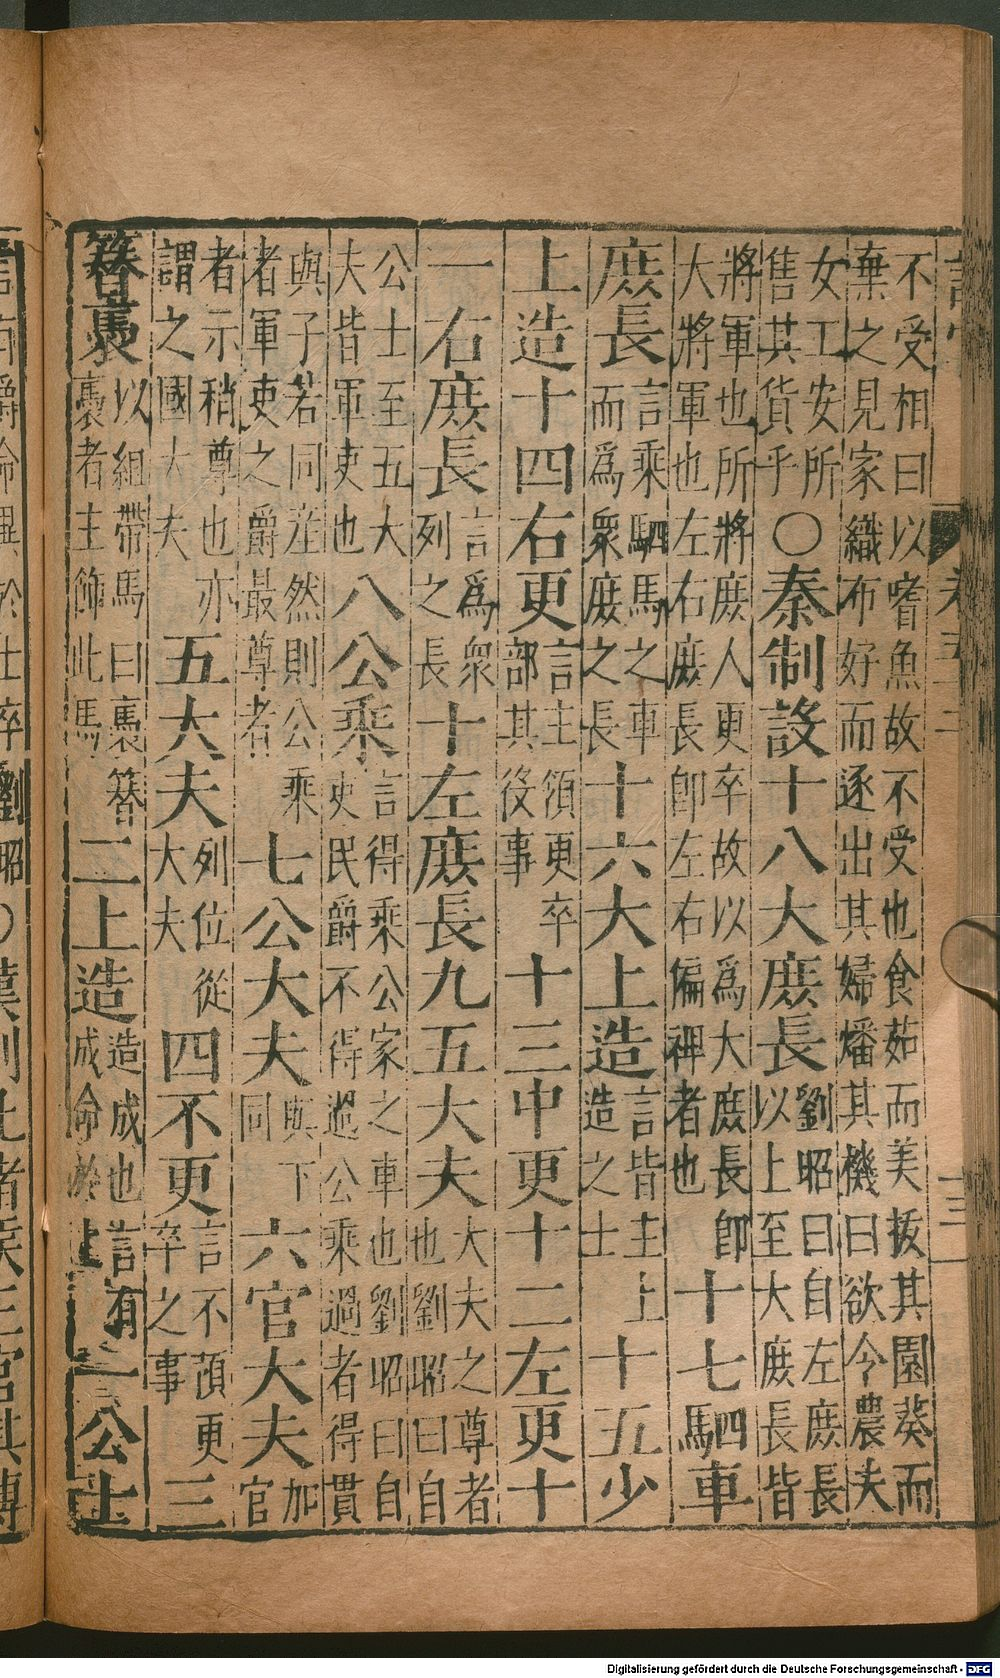 不受相曰以嗜魚故不受也食茹而美拔其園葵而
棄之見家織布好而逐出其婦燔其機曰欲令農夫
女工安所售其貨乎○秦制設十八大庶長劉昭曰自左庶長以上至大庶長皆
將軍也所將庶人更卒故以爲大庶長卽大將軍也左右庶長卽左右偏裨者也十七駟車
庶長言乘駟馬之車而爲衆庶之長十六大上造言皆主上造之士十五少
上造十四右更言主領更卒部其役事十三中更十二左更十
一右庶長言爲衆列之長十左庶長九五大夫大夫之尊者也劉昭曰自
公士至五大夫皆軍吏也八公乘言得乘公家之車也劉昭曰自吏民爵不得過公乘過者得貫
與子若同產然則公乘者軍吏之爵最尊者七公大夫與下同六官大夫加官
者示稍尊也亦謂之國大夫五大夫列位從大夫四不更言不預更卒之事三
簪褭以組帶馬曰褭簪褭者主飾此馬二上造造成也言有成命於一公士
Digitalisierung gefördert durch die Deutsche Forschungsgemeinschaft - DFG